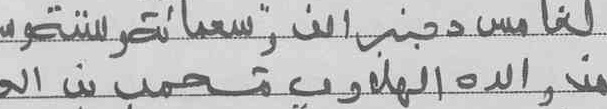 لخامس دجنبر الف وتسعمائة وستة وس
من والده الهلاوي محمد بن الح